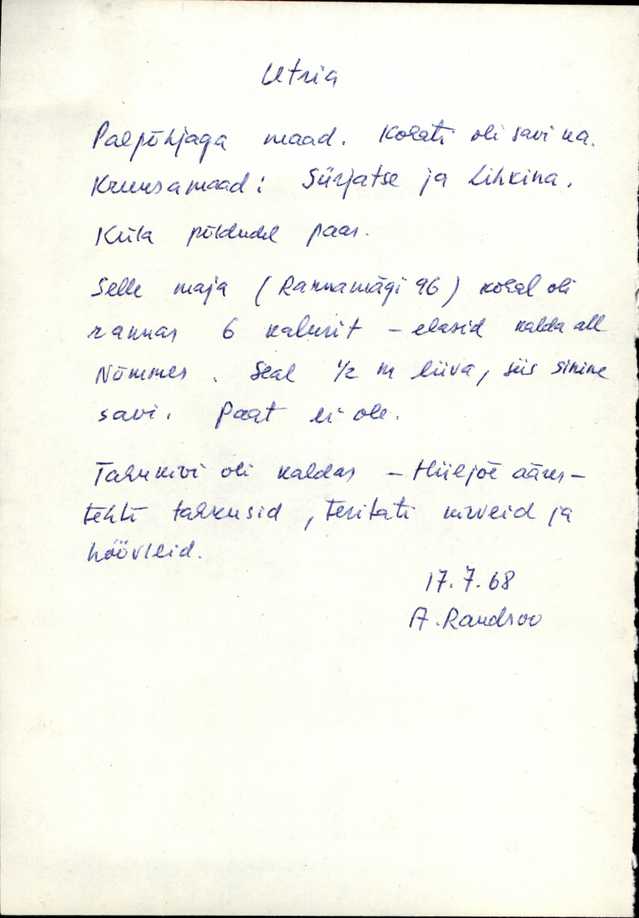 Utria
Paepõhjaga maad. Kohati oli savi ka.
Kruusamaad: Sürjatse ja Lihkina.
Küla põldudel paas.
Selle maja (Rannamägi 96) kohal oli
rannas 6 kalurit – elasid kalda all
Nõmmes. Seal 1/2 m liiva, siis sinine
savi. Paat ei ole.
Tahukivi oli kaldas – Hiiejõe ääres –
tehti tahkusid, teritati kirveid ja
höövleid.
17.7.68
A. Randsoo